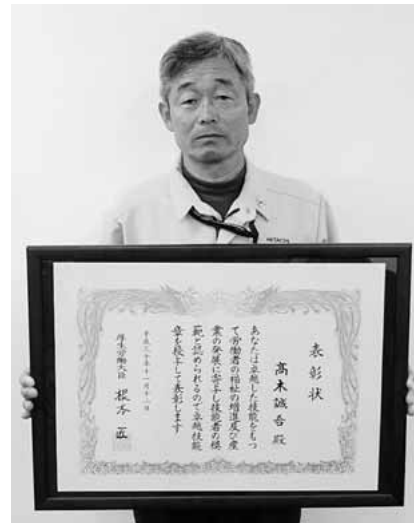 HITACHI
表彰状
高木誠吾殿
あなたは卓越した技能をもつ
て労働者の福祉の増進及び産
業の発展に寄与し技能者の模
範と認められるので卓越技能
章を授与して表彰します
平成三十年十一月十二日
厚生労働大臣 根本匠